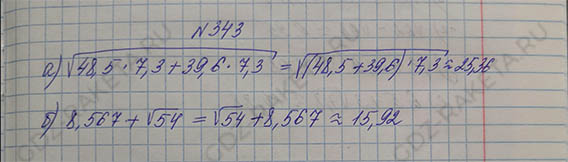 N343
а) √(48,5 · 7,3 + 39,6 · 7,3) = √((48,5 + 39,6) · 7,3) ≈ 25,36
б) 8,567 + √54 = √54 + 8,567 ≈ 15,92
GDZ-RAKETA.RU